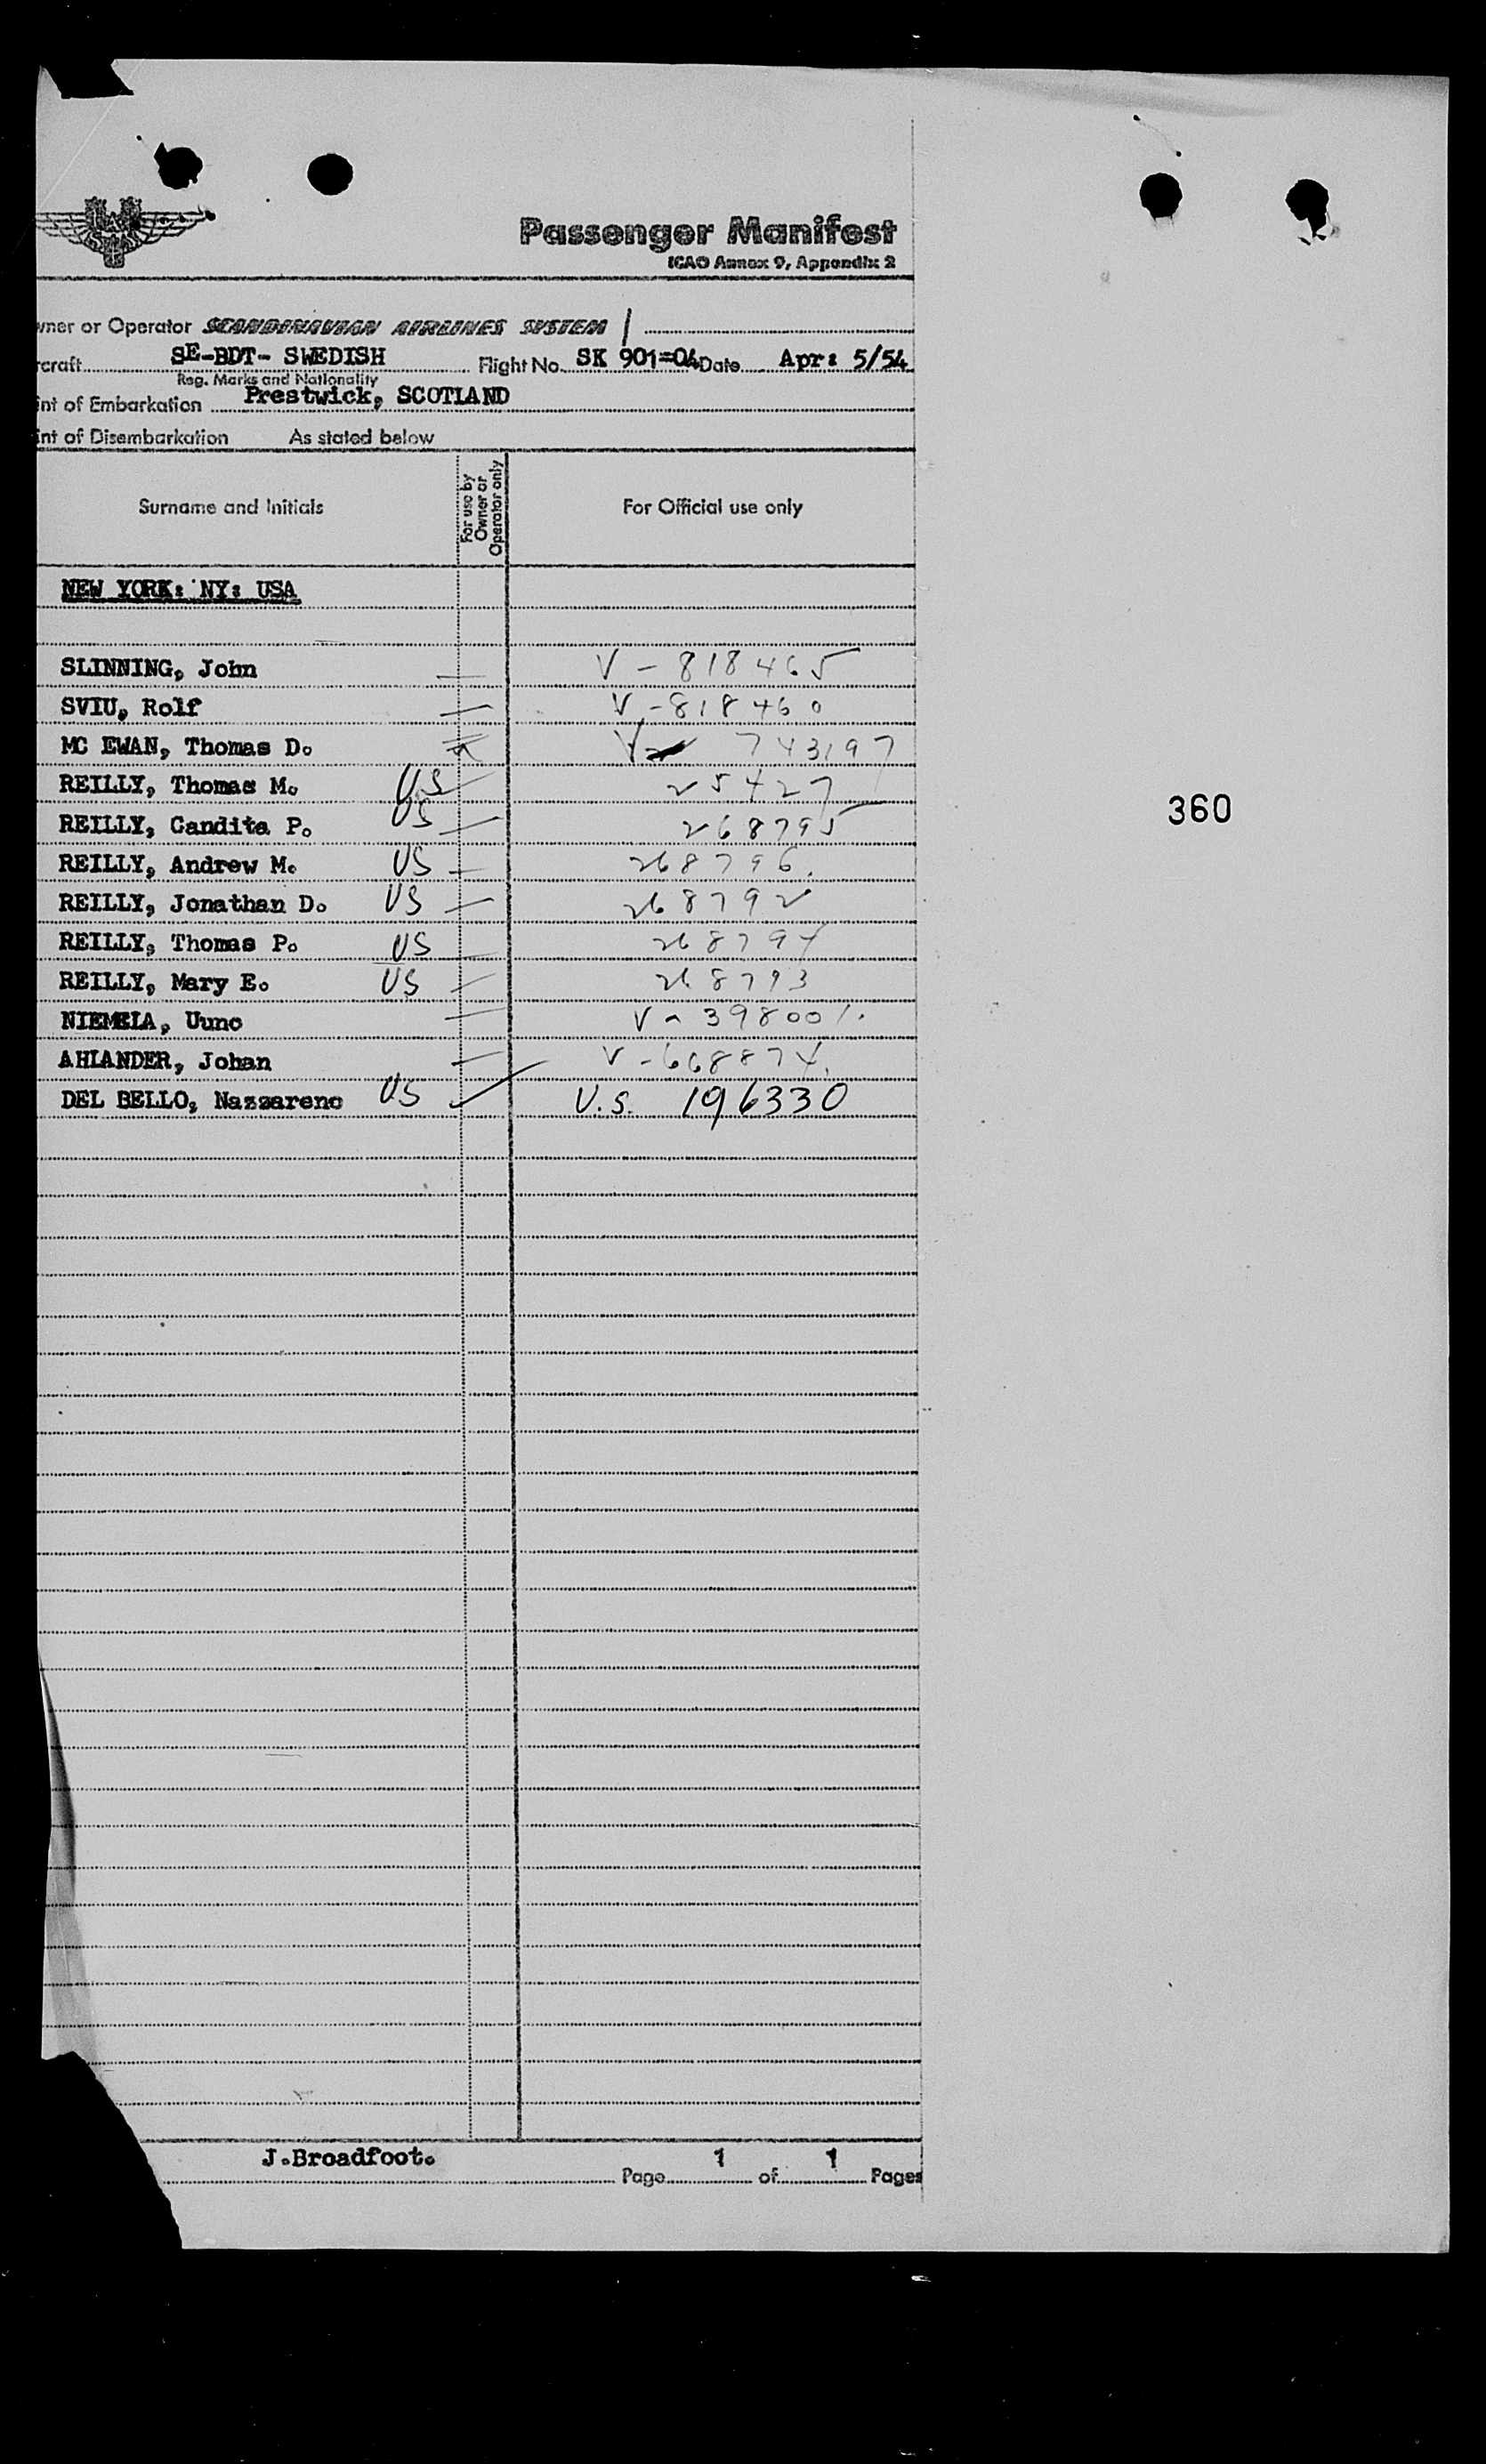 Passenger Manifest
ICAO Annex 9, Appendix 2
wner or Operator SCANDINAVIAN AIRLINES SYSTEM
rcraft SE-BDT- SWEDISH Flight No. SK 901=04 Date Apr: 5/54
Reg. Marks and Nationality
int of Embarkation Prestwick, SCOTLAND
int of Disembarkation As stated below
Surname and Initials For use by Owner or Operator only For Official use only
NEW YORK: NY: USA
SLINNING, John V - 818465
SVIU, Rolf V - 818460
MC EWAN, Thomas D. V 743197
REILLY, Thomas M. US 25427
REILLY, Candita P. US 268795
REILLY, Andrew M. US 268796
REILLY, Jonathan D. US 268792
REILLY, Thomas P. US 268794
REILLY, Mary E. US 268793
NIEMELA, Uuno V - 398001
AHLANDER, Johan V - 668874
DEL BELLO, Nazzareno US U.S. 196330
360
J.Broadfoot.
Page 1 of 1 Pages